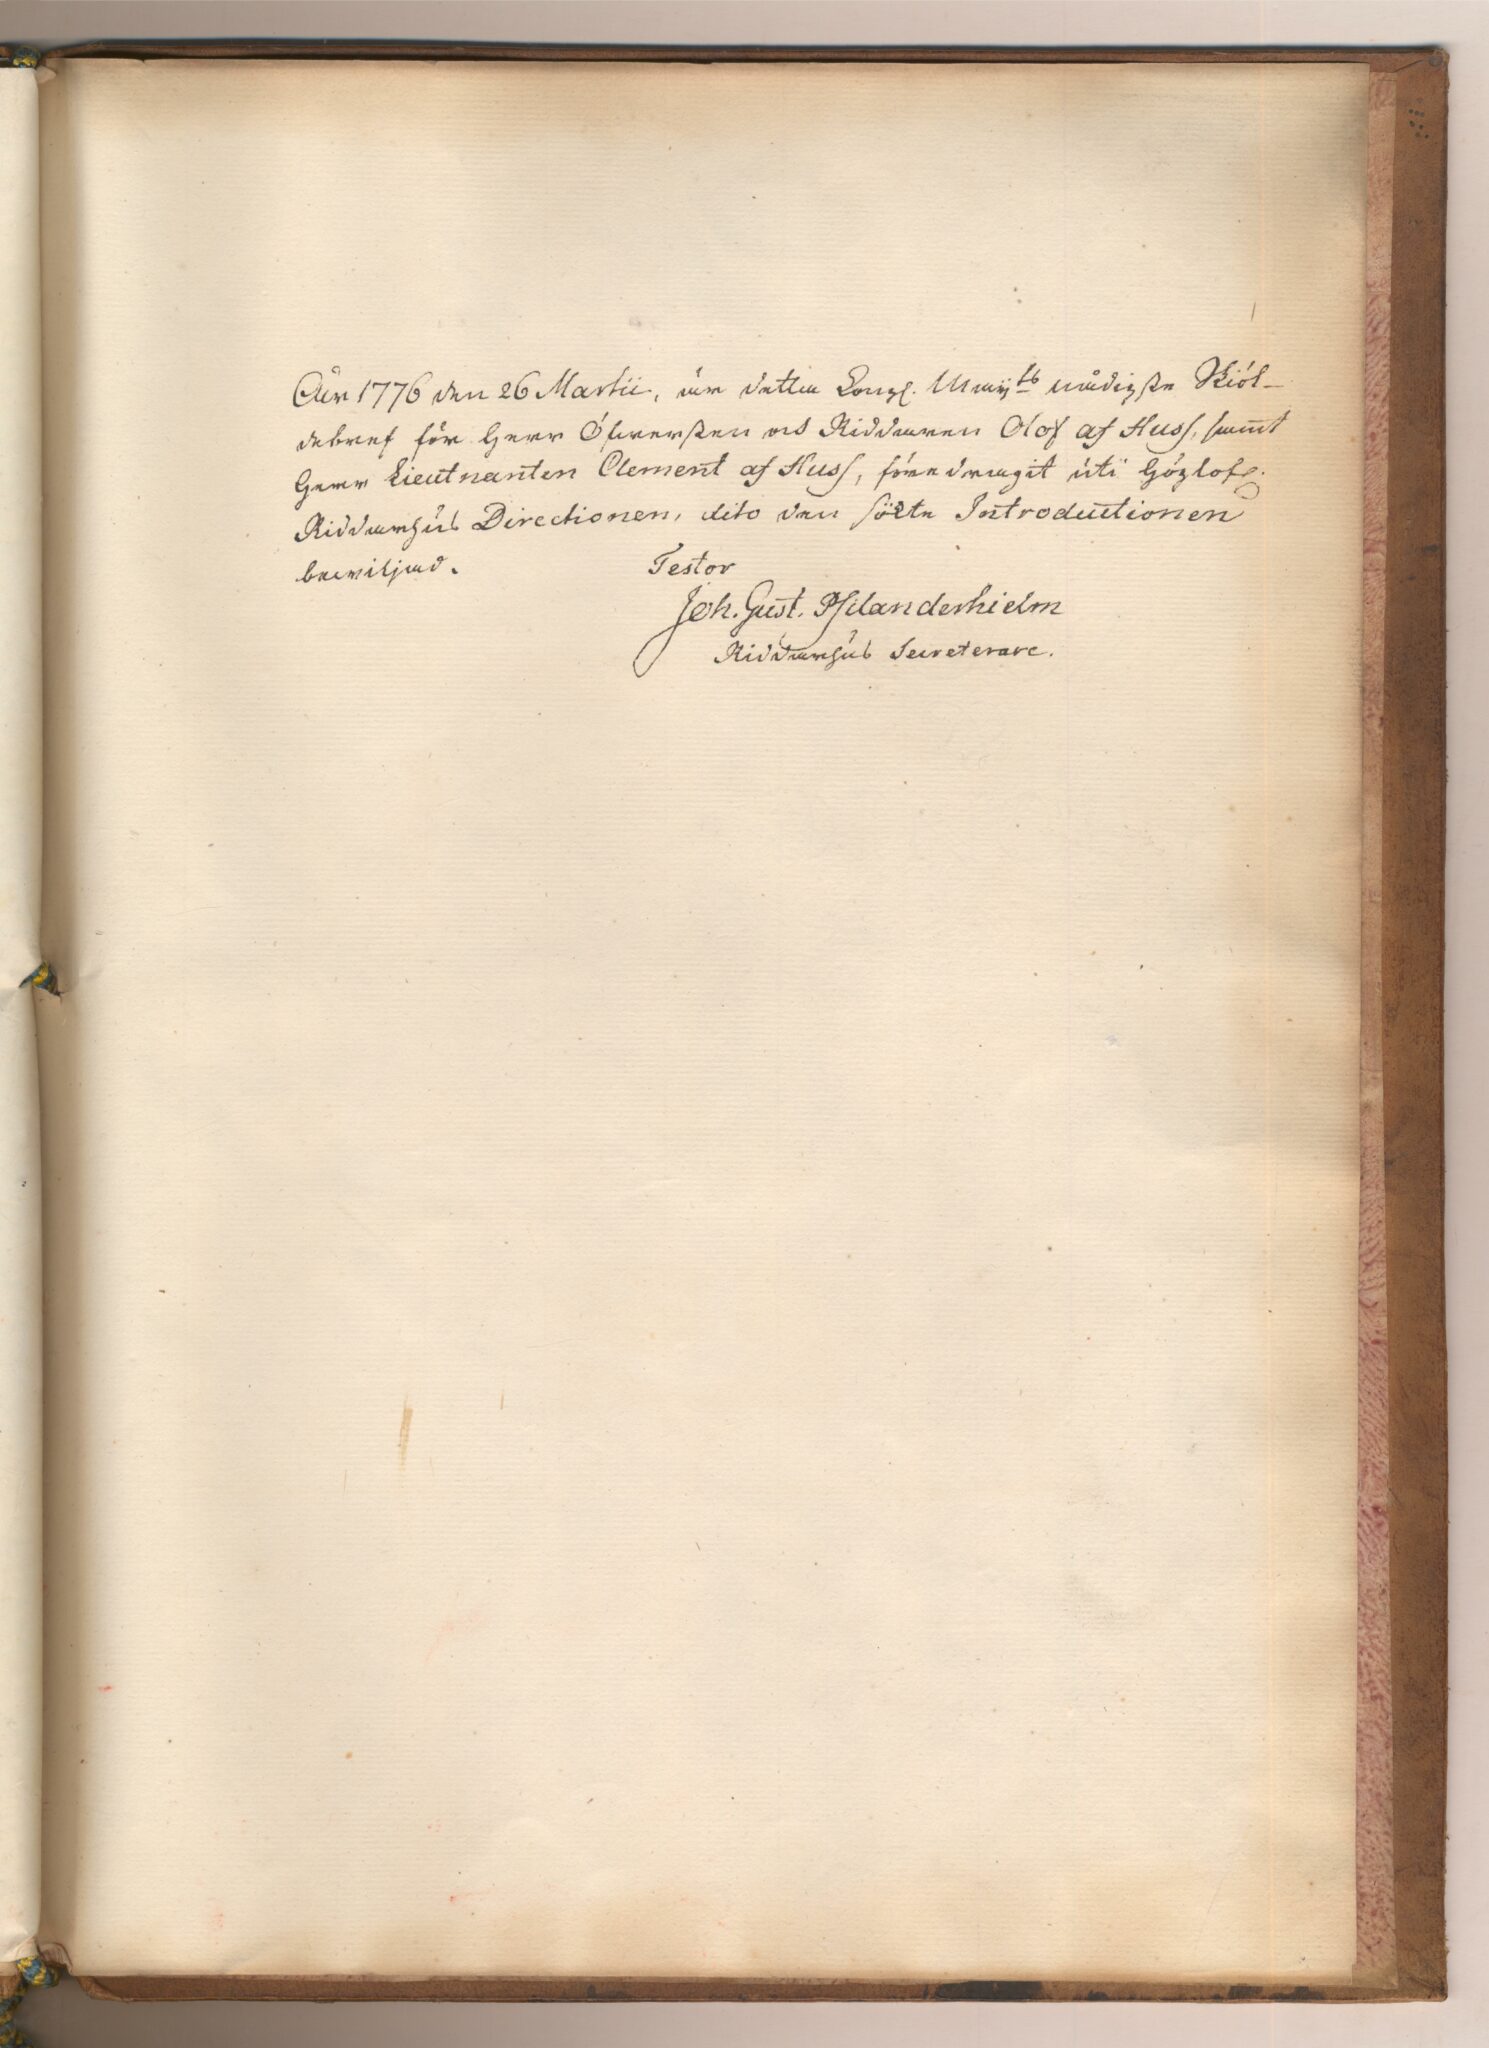 Åhr 1776 den 26 Martii, är detta Kongl. Maij:ts nådigste Skiöl-
debref för Herr Öfwersten och Riddaren Olof af Huss, samt
Herr Lieutnanten Clement af Huss, föredragit uti Höglofl.
Riddarhus Directionen, och den sökte Introductionen
bewiljad.
Testor
Joh. Gust. Psilanderhielm
Riddarhus Secreterare.